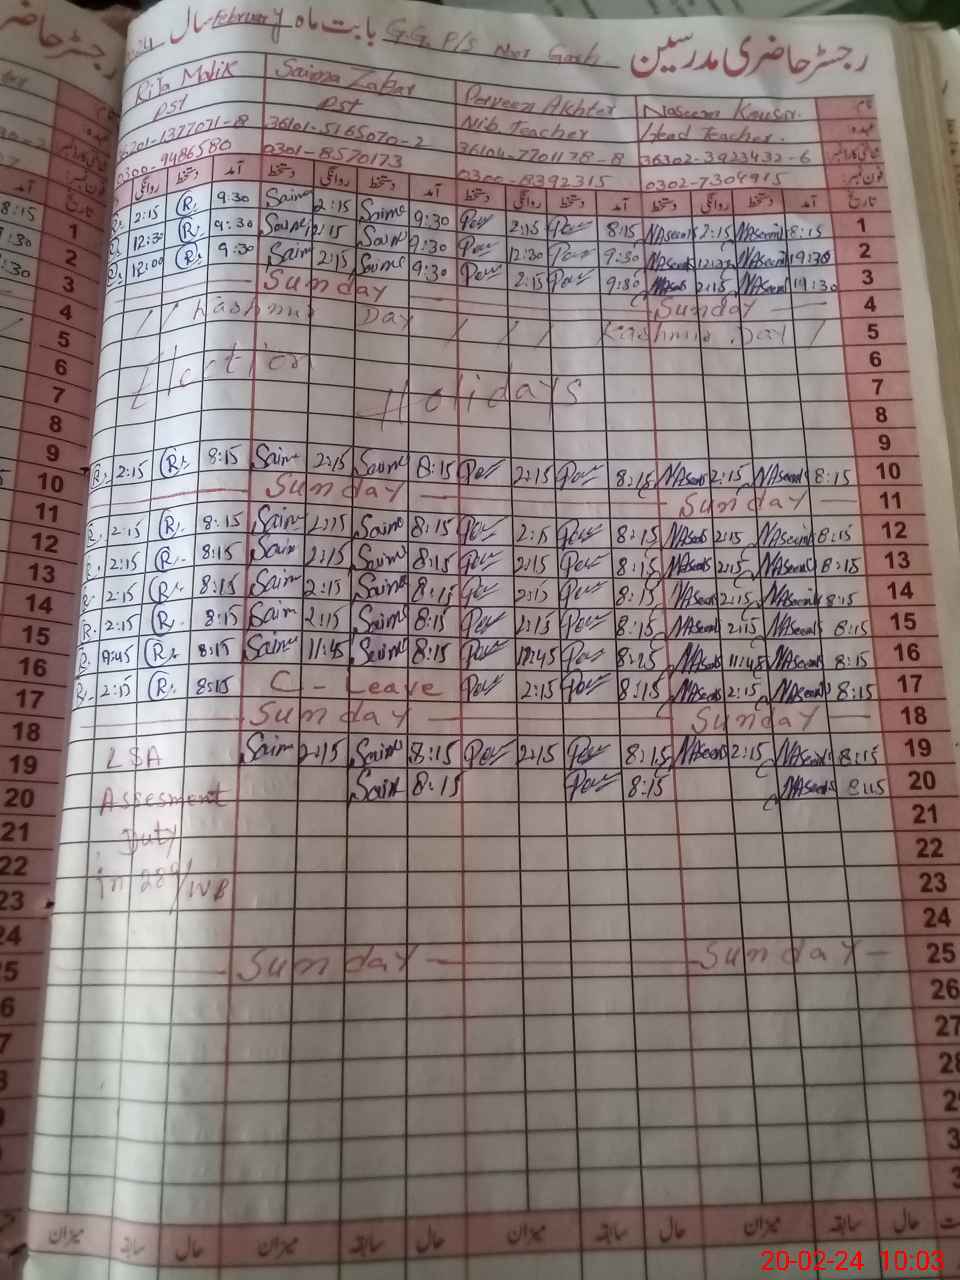 رجسٹر حاضری مدرسین G.G. P/S Noor Garh بابت ماہ February سال
نام Naseem Kausar. Parveen Akhter Saima Zafar Rifa Malik
عہدہ Head Teacher. Nib Teacher PST PST
36302-3923432-6 36104-7701178-8 36101-5165070-2
فون نمبر 0302-7304915 0300-8392315 0301-8570173 0300-9486580
تاریخ آمد دستخط روانگی دستخط آمد دستخط روانگی دستخط آمد دستخط روانگی دستخط آمد دستخط روانگی
1 8:15 NAseem 2:15 NAseem 8:15 Par 2:15 Par 9:30 Saima 2:15 Saima 9:30 R. 2:15
2 9:30 NAseem 12:30 NAseem 9:30 Par 12:30 Par 9:30 Saima 2:15 Saima 9:30 R. 12:30
3 9:30 NAseem 2:15 NAseem 9:30 Par 2:15 Par 9:30 Saima 2:15 Saima 9:30 R. 12:00
4 Sunday Sunday
5 Kashmir Day Kashmir Day
6
7 Election Holidays
8
9
10 8:15 NAseem 2:15 NAseem 8:15 Par 2:15 Par 8:15 Saima 2:15 Saima 8:15 R. 2:15 R.
11 Sunday Sunday
12 8:15 NAseem 2:15 NAseem 8:15 Par 2:15 Par 8:15 Saima 2:15 Saima 8:15 R. 2:15 R.
13 8:15 NAseem 2:15 NAseem 8:15 Par 2:15 Par 8:15 Saima 2:15 Saima 8:15 R. 2:15 R.
14 8:15 NAseem 2:15 NAseem 8:15 Par 2:15 Par 8:15 Saima 2:15 Saima 8:15 R. 2:15 R.
15 8:15 NAseem 2:15 NAseem 8:15 Par 2:15 Par 8:15 Saima 2:15 Saima 8:15 R. 2:15 R.
16 8:15 NAseem 11:45 NAseem 8:15 Par 11:45 Par 8:15 Saima 11:45 Saima 8:15 R. R.
17 8:15 NAseem 2:15 NAseem 8:15 Par 2:15 Par C - Leave 8:15 R. 2:15 R.
18 Sunday Sunday
19 8:15 NAseem 2:15 NAseem 8:15 Par 2:15 Par 8:15 Saima 2:15 Saima LSA
20 8:15 NAseem 8:15 Par 8:15 Saima Assesment
21 Duty
22 in 289/WB
23
24
25 Sunday Sunday
26
27
حال سابقہ میزان حال سابقہ میزان حال سابقہ میزان حال سابقہ میزان
20-02-24 10:03